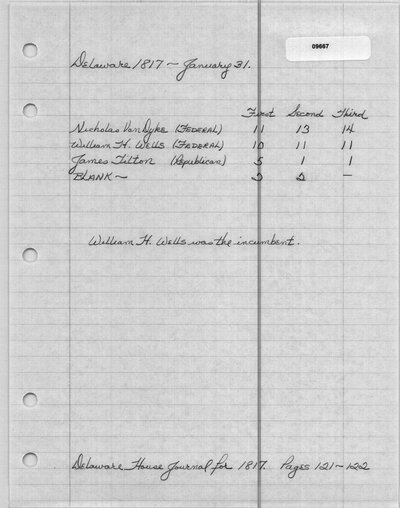 09667
Delaware 1817 ~ January 31.
First Second Third
Nicholas VanDyke (Federal) 11 13 14
William H. Wells (Federal) 10 11 11
James Tilton (Republican) 5 1 1
BLANK ~ 2 2 —
William H. Wells was the incumbent.
Delaware House Journal for 1817. Pages 121~122